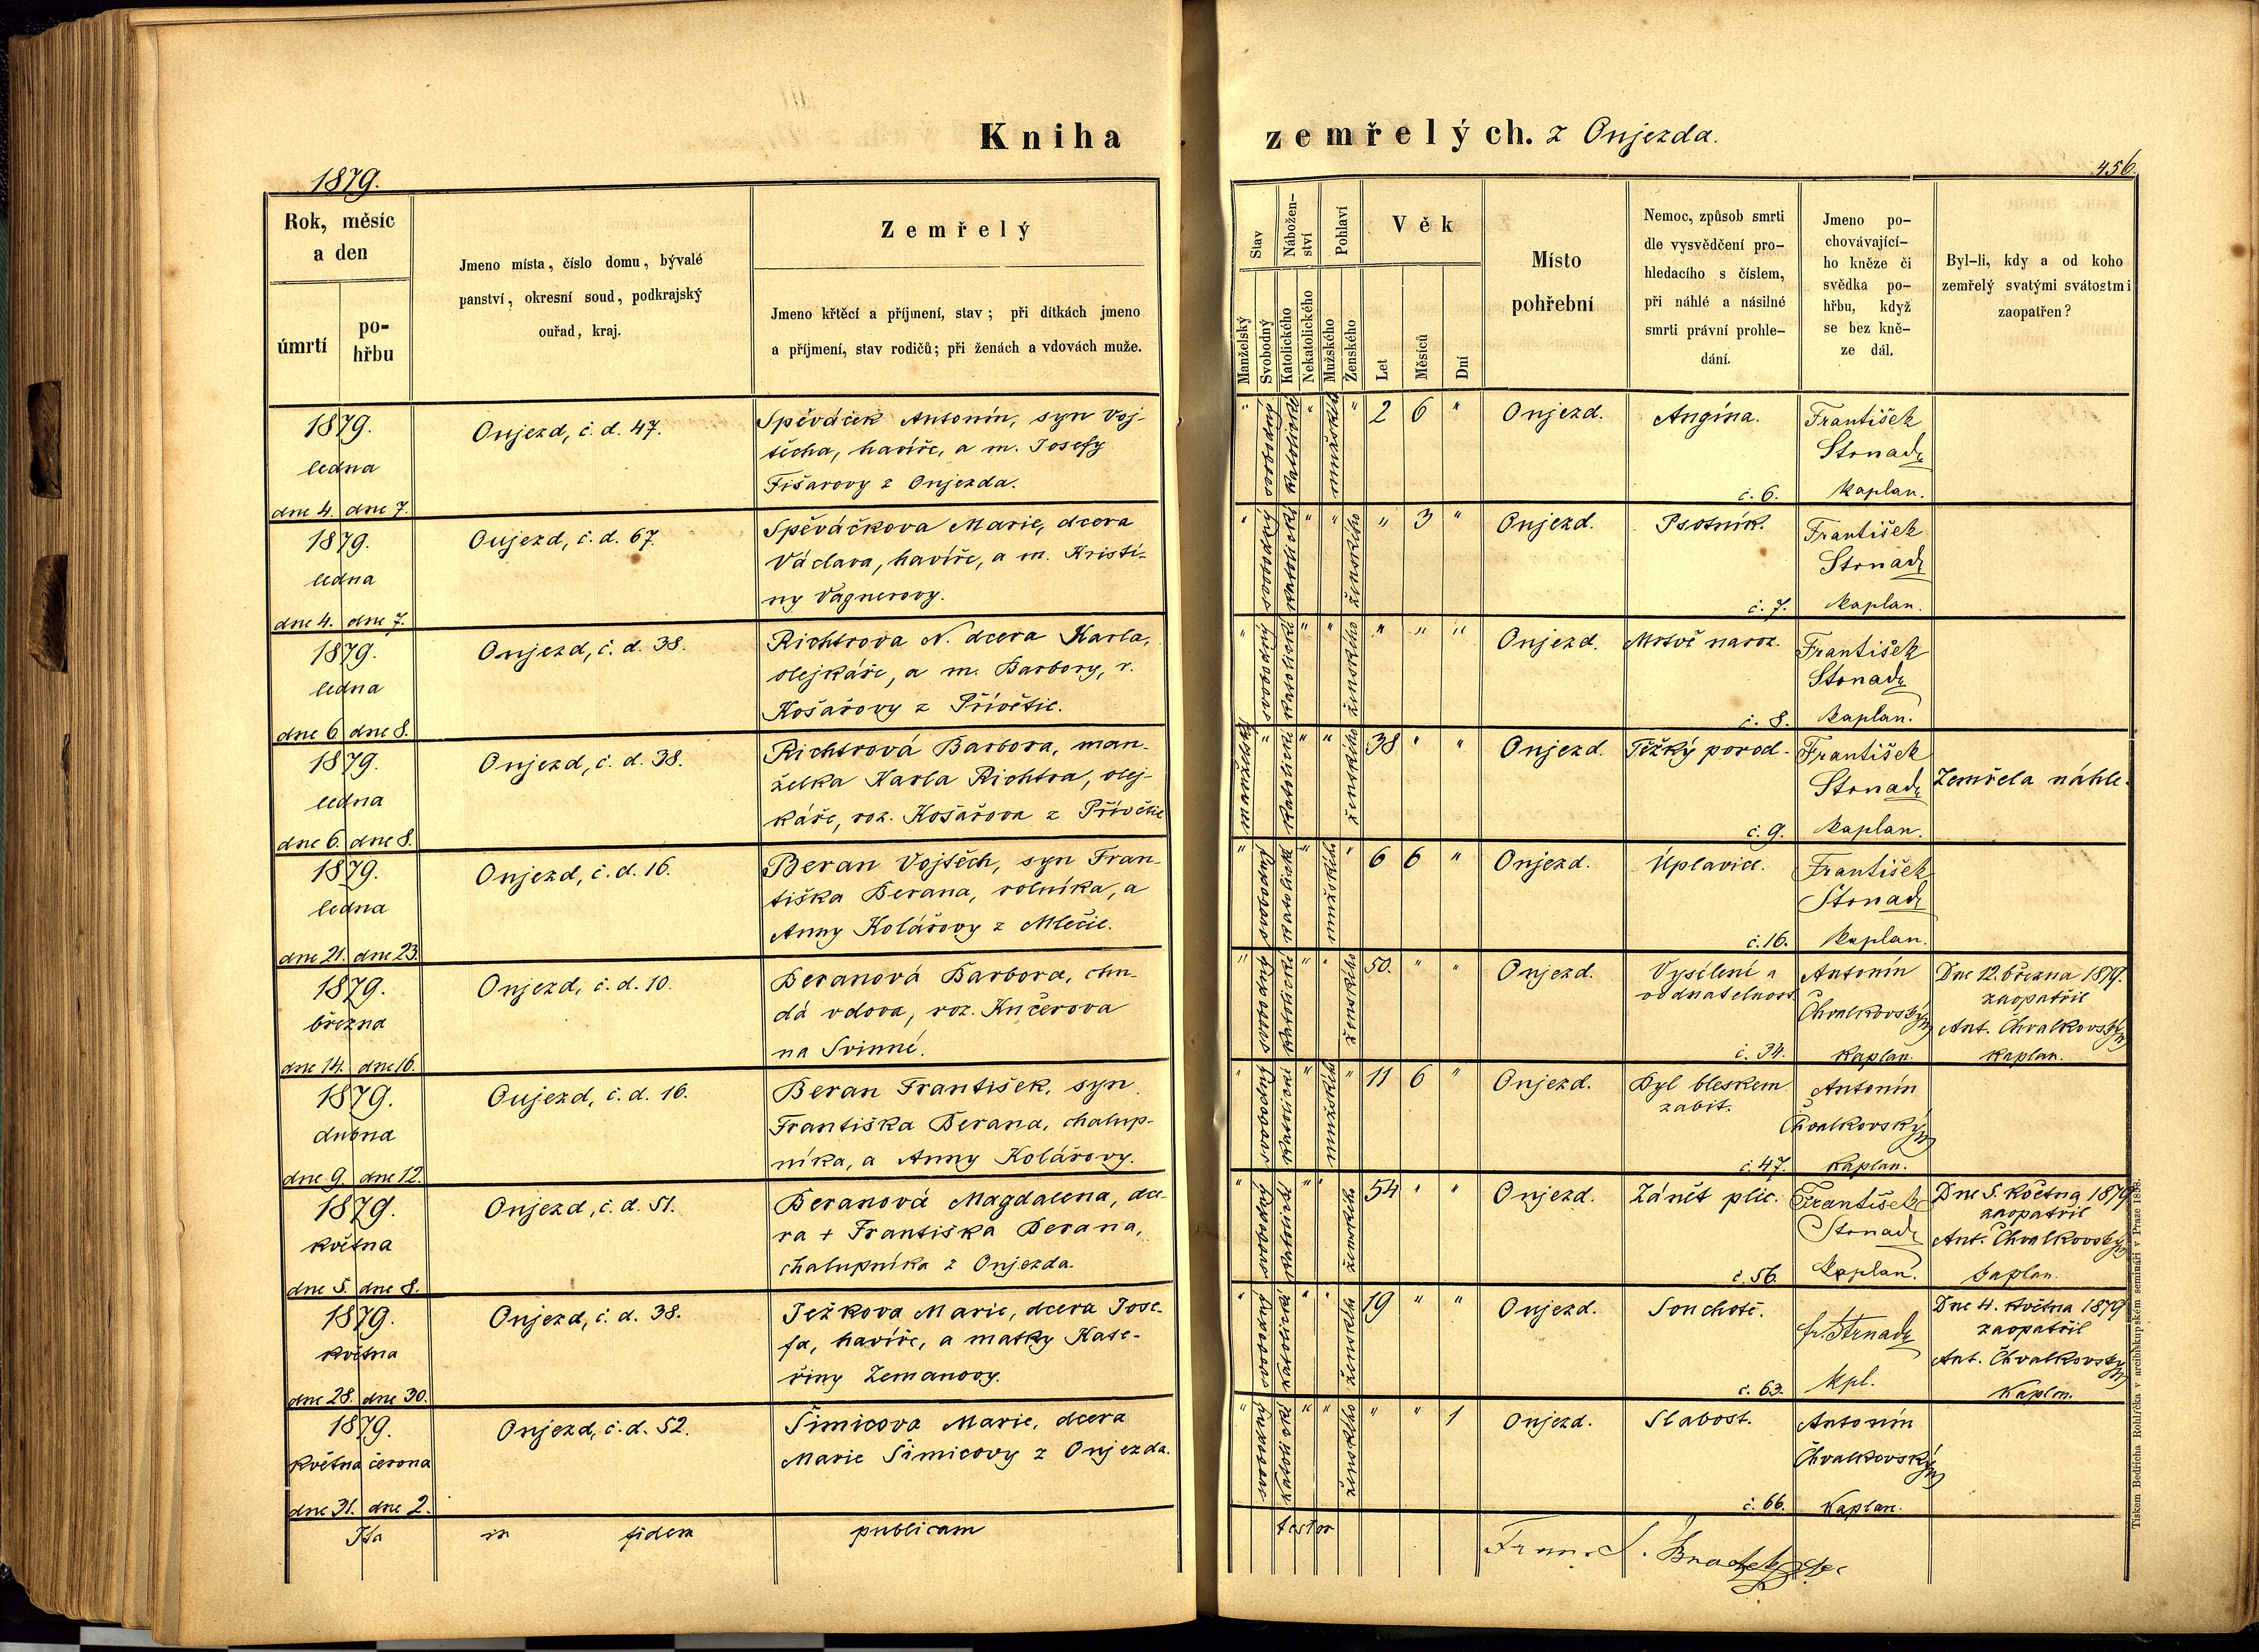 Kniha zemřelých. z Onjezda.
1879.
456.
Rok, měsíc
a den
úmrtí
po-
hřbu
Jmeno místa, číslo domu, bývalé
panství, okresní soud, podkrajský
ouřad, kraj.
Zemřelý
Jmeno křtěcí a příjmení, stav; při dítkách jmeno
a příjmení, stav rodičů; při ženách a vdovách muže.
Stav
Manželský
Svobodný
Nábožen-
ství
Katolického
Nekatolického
Pohlaví
Mužského
Ženského
Věk
Let
Měsíců
Dní
Místo
pohřební
Nemoc, způsob smrti
dle vysvědčení pro-
hledacího s číslem,
při náhlé a násilné
smrti právní prohle-
dání.
Jmeno po-
chovávající-
ho kněze či
svědka po-
hřbu, když
se bez kně-
ze dál.
Byl-li, kdy a od koho
zemřelý svatými svátostmi
zaopatřen?
1879.
ledna
dne 4. dne 7.
Onjezd, č. d. 47.
Spěváček Antonín, syn Voj-
těcha, havíře, a m. Josefy
Fišarovy z Onjezda.
" svobodný katolické " mužské " 2 6 "
Onjezd.
Angína.
č. 6.
František
Strnad
kaplan.
1879.
ledna
dne 4. dne 7.
Oujezd, č. d. 67.
Spěváčkova Marie, dcera
Václava, havíře, a m. Kristi-
ny Vágnerovy.
" svobodný katolické " " ženského " 3 "
Onjezd.
Psotník.
č. 7.
František
Strnad
kaplan.
1879.
ledna
dne 6 dne 8.
Onjezd, č. d. 38.
Richtrova N. dcera Karla,
olejkáře, a m. Barbory, r.
Košařovy z Přívětic.
" svobodný katolické " " ženského " " "
Onjezd.
Mrtvě naroz.
č. 8.
František
Strnad
kaplan.
1879.
ledna
dne 6. dne 8.
Onjezd, č. d. 38.
Richtrová Barbora, man-
želka Karla Richtra, olej-
káře, roz. Košařova z Přívětic
manželský " katolické " " ženského 38 " "
Onjezd.
Těžký porod.
č. 9.
František
Strnad
kaplan.
Zemřela náhle.
1879.
ledna
dne 21. dne 23.
Onjezd, č. d. 16.
Beran Vojtěch, syn Fran-
tiška Berana, rolníka, a
Anny Kolářovy z Mlečic.
" svobodný katolické " mužského " 6 6 "
Onjezd.
Úplavice.
č. 16.
František
Strnad
kaplan.
1879.
března
dne 14. dne 16.
Onjezd, č. d. 10.
Beranová Barbora, chu-
dá vdova, roz. Kučerova
na Svinné.
" svobodný katolické " " ženského 50. " "
Onjezd.
Vysílení a
vodnatelnost.
č. 34.
Antonín
Chvalkovský
kaplan.
Dne 12. března 1879.
zaopatřil
Ant. Chvalkovský
kaplan.
1879.
dubna
dne 9. dne 12.
Oujezd, č. d. 16.
Beran František, syn
Františka Berana, chalup-
níka, a Anny Kolářovy.
" svobodný katolické " mužského " 11 6 "
Onjezd.
Byl bleskem
zabit.
č. 47.
Antonín
Chvalkovský
kaplan.
1879.
května
dne 5. dne 8.
Onjezd, č. d. 51.
Beranová Magdalena, dce-
ra + Františka Berana,
chalupníka z Onjezda.
" svobodný katolické " " ženského 54 " "
Onjezd.
Zánět plic.
č. 56.
František
Strnad
kaplan.
Dne 5. května 1879
zaopatřil
Ant. Chvalkovský
kaplan.
1879.
května
dne 28. dne 30.
Onjezd, č. d. 38.
Ježkova Marie, dcera Jose-
fa, havíře, a matky Kate-
řiny Zemanovy.
" svobodný katolické " " ženského 19 " "
Onjezd.
Souchotě.
č. 63.
fr. Strnad
kpl.
Dne 4. května 1879
zaopatřil
Ant. Chvalkovský
kaplan.
1879.
května června
dne 31. dne 2.
Onjezd, č. d. 52.
Šimicova Marie, dcera
Marie Šimicovy z Onjezda.
" svobodný katolické " " ženského " " 1
Onjezd.
Slabost.
č. 66.
Antonín
Chvalkovský
kaplan.
Ita in fidem publicam testor
Tiskem Bedřicha Rohlíčka v arcibiskupském semináři v Praze 1868.